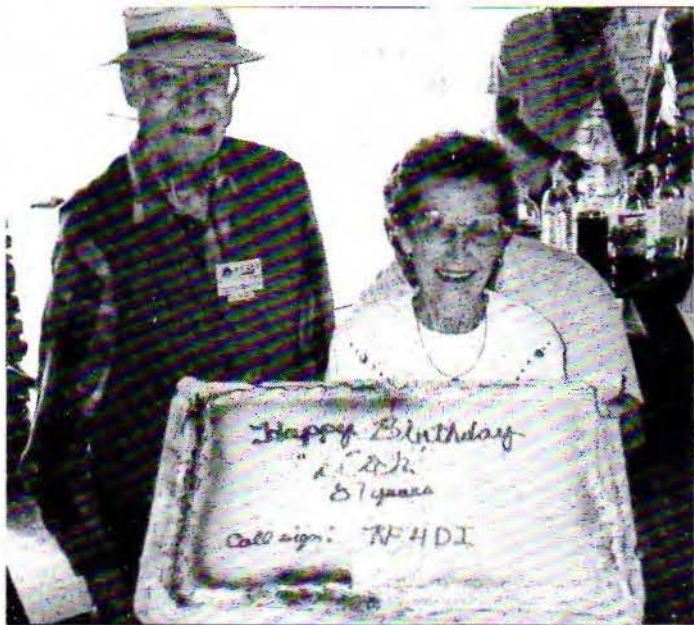 Happy Birthday
81 years
Call sign: KF4DI